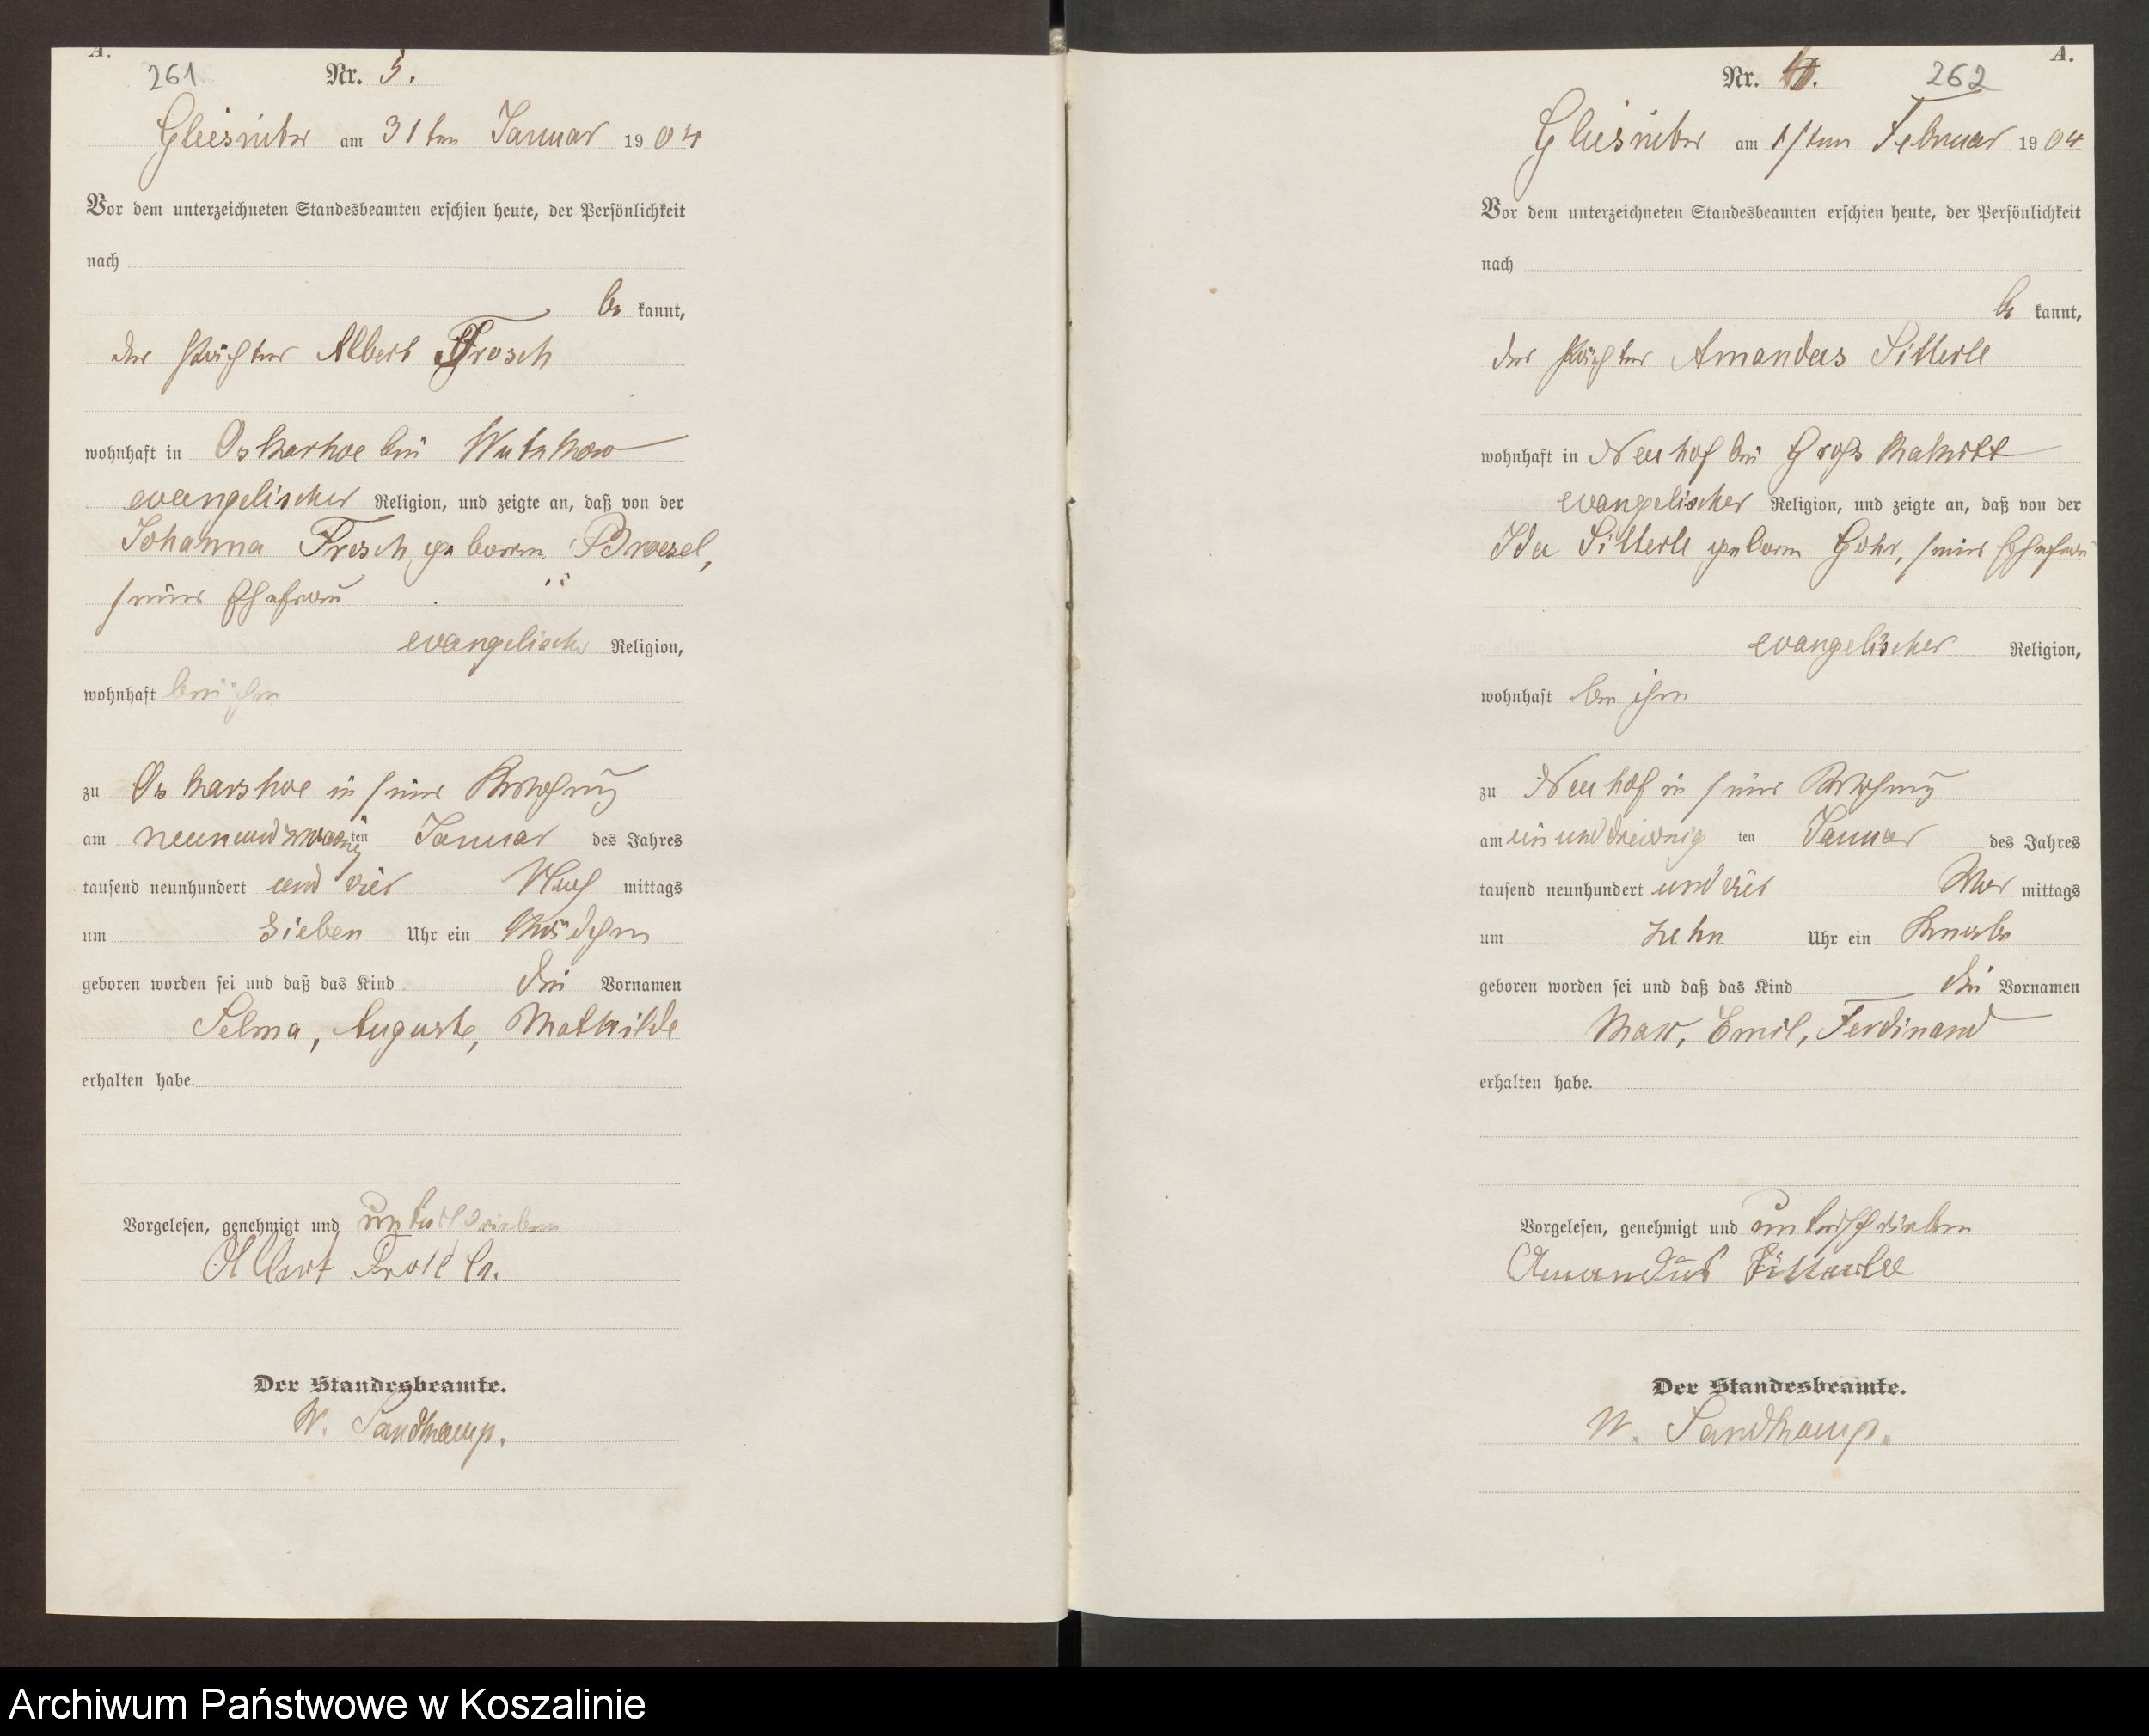 A.
261
Nr. 5.
Gliesnitz am 31ten Januar 1904
Vor dem unterzeichneten Standesbeamten erschien heute, der Persönlichkeit
nach
be kannt,
der Pächter Albert Frosch
wohnhaft in Oskarhoe bei Wutzkow
evangelischer Religion, und zeigte an, daß von der
Johanna Frosch geboren Broesel,
seine Ehefrau
evangelischer Religion,
wohnhaft bei ihm
zu Oskarshoe in seine Wohnung
am neunundzwanzig ten Januar des Jahres
tausend neunhundert und vier Nach mittags
um sieben Uhr ein Mädchen
geboren worden sei und daß das Kind die Vornamen
Selma, Auguste, Mathilde
erhalten habe.
Vorgelesen, genehmigt und unterschrieben
Albert Frosch.
Der Standesbeamte.
W. Sandkamp.
A.
Nr.
262
Gliesnitz am 1sten Februar 1904
Vor dem unterzeichneten Standesbeamten erschien heute, der Persönlichkeit
nach
be kannt,
der Pächter Amandus Sitterle
wohnhaft in Neuhof bei Groß
evangelischer Religion, und zeigte an, daß von der
Ida Sitterle geboren Gohr, seine Ehefrau
evangelischer Religion,
wohnhaft bei ihm
zu Neuhof in seine Wohnung
am einunddreissig ten Januar des Jahres
tausend neunhundert und vier Vor mittags
um zehn Uhr ein Knabe
geboren worden sei und daß das Kind die Vornamen
Max, Emil, Ferdinand
erhalten habe.
Vorgelesen, genehmigt und unterschrieben
Amandus Sitterle
Der Standesbeamte.
W. Sandkamp.
Archiwum Państwowe w Koszalinie